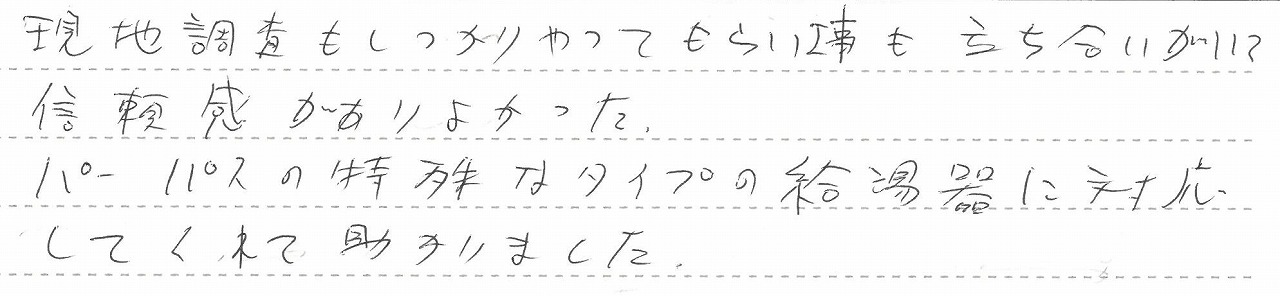 現地調査もしっかりやってもらい工事も立ち合いがいて
信頼感がありよかった。
パーパスの特殊なタイプの給湯器に対応
してくれて助かりました。